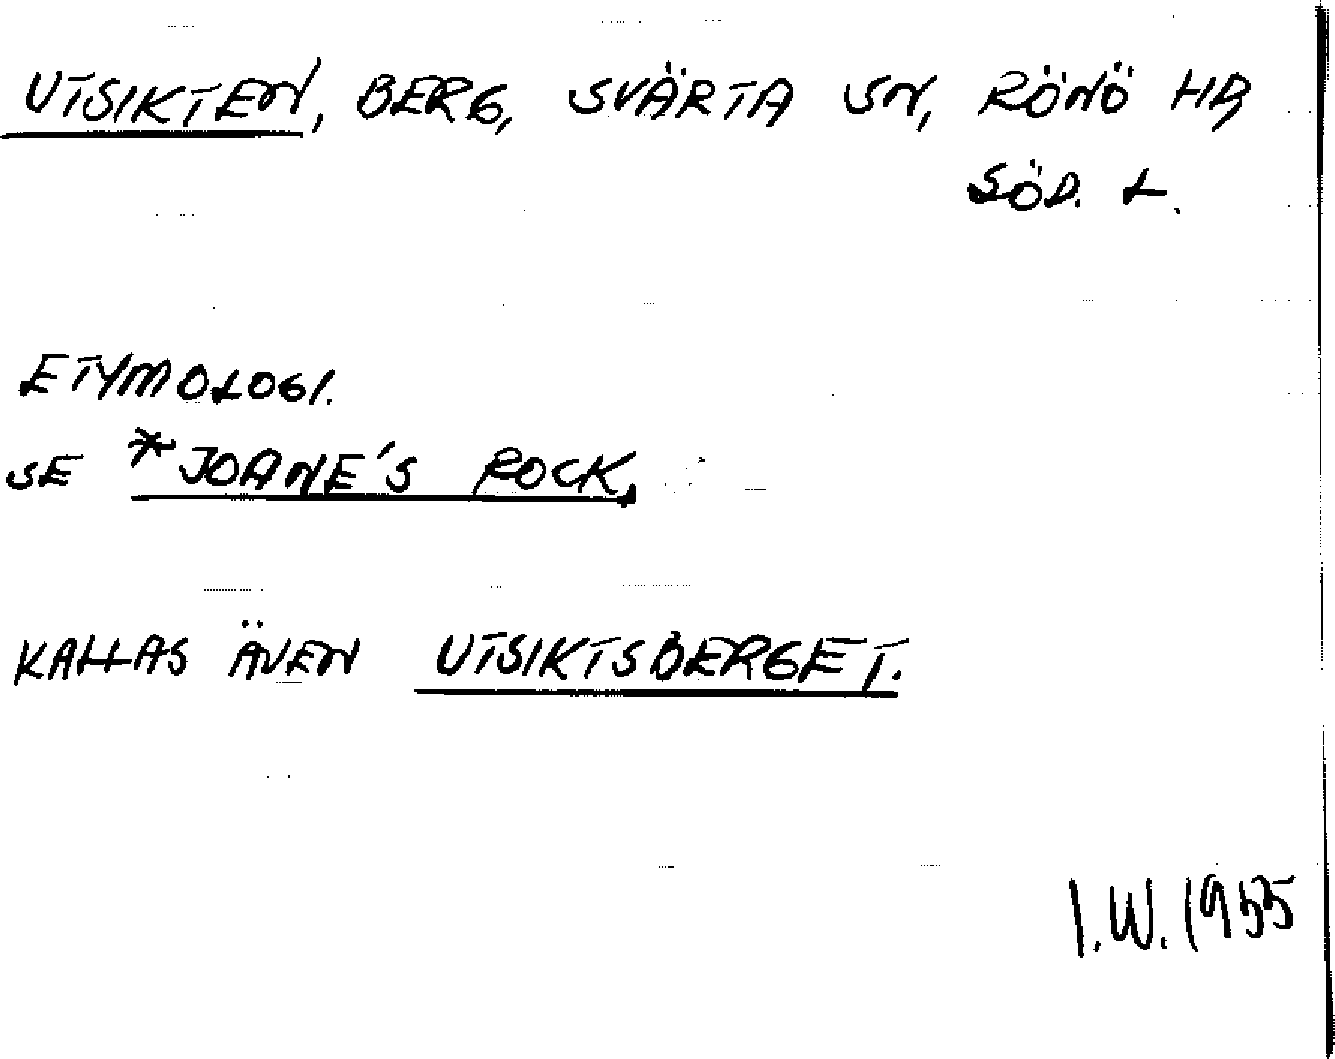 UTSIKTEN, BERG, SVÄRTA SN, RÖNÖ HD
SÖD. L.
ETYMOLOGI.
SE *JOANE'S ROCK.
KALLAS ÄVEN UTSIKTSBERGET.
I.W. 1955